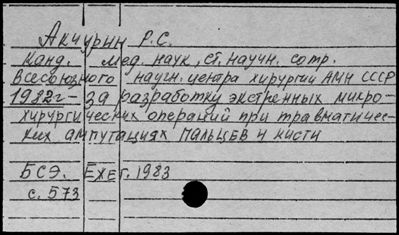 Акчурин Р.С.
Канд. мед. наук, ст. научн. сотр.
Всесоюзного научн. центра хирургии АМН СССР
1982г - за разработку экстренных микро-
хирургических операций при травматичес-
ких ампутациях пальцев и кисти
БСЭ. Ежег. 1983
с. 573